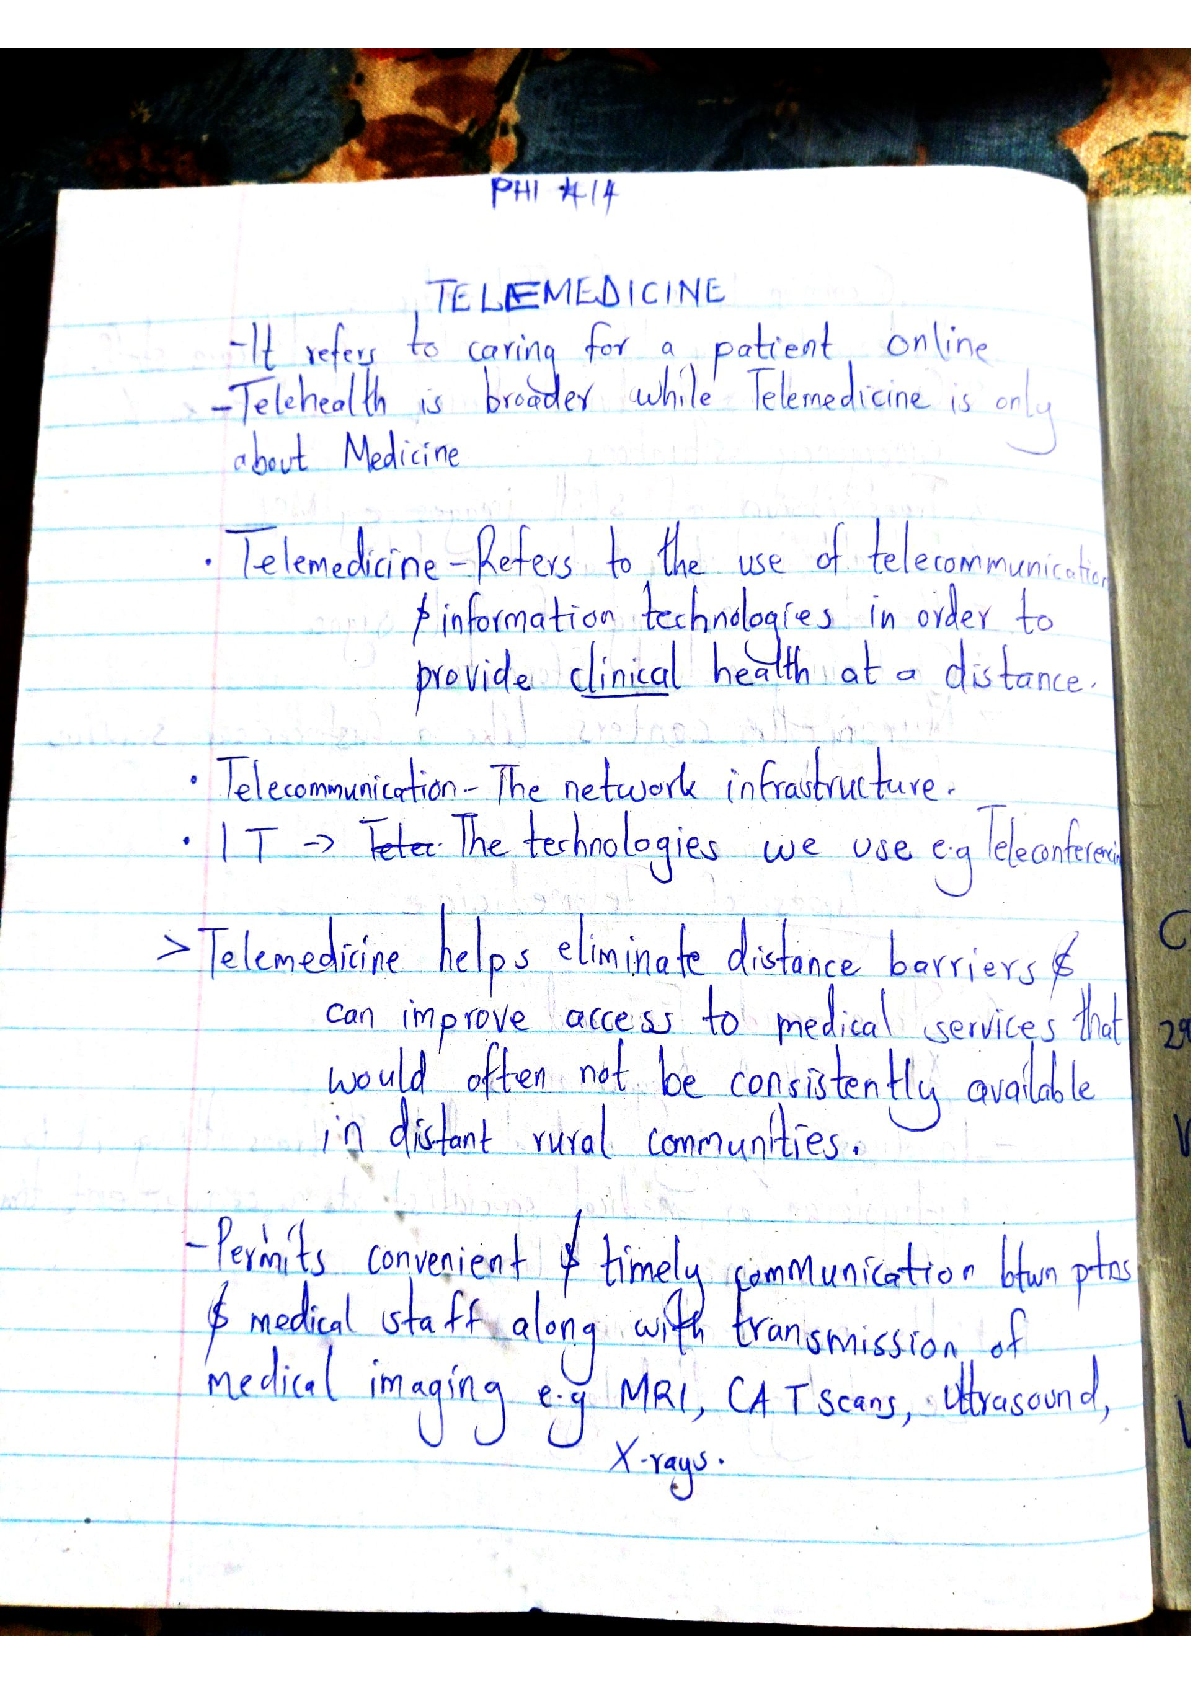 PHI 414
TELEMEDICINE
-It refers to caring for a patient online
-Telehealth is broader while Telemedicine is only
about Medicine
· Telemedicine - Refers to the use of telecommunication
& information technologies in order to
provide clinical health at a distance.
· Telecommunication - The network infrastructure.
· IT -> The technologies we use e.g Teleconferencin
> Telemedicine helps eliminate distance barriers &
can improve access to medical services that
would often not be consistently available
in distant rural communities.
- Permits convenient & timely communication btwn ptns
& medical staff along with transmission of
medical imaging e.g MRI, CAT scans, Ultrasound,
X-rays.